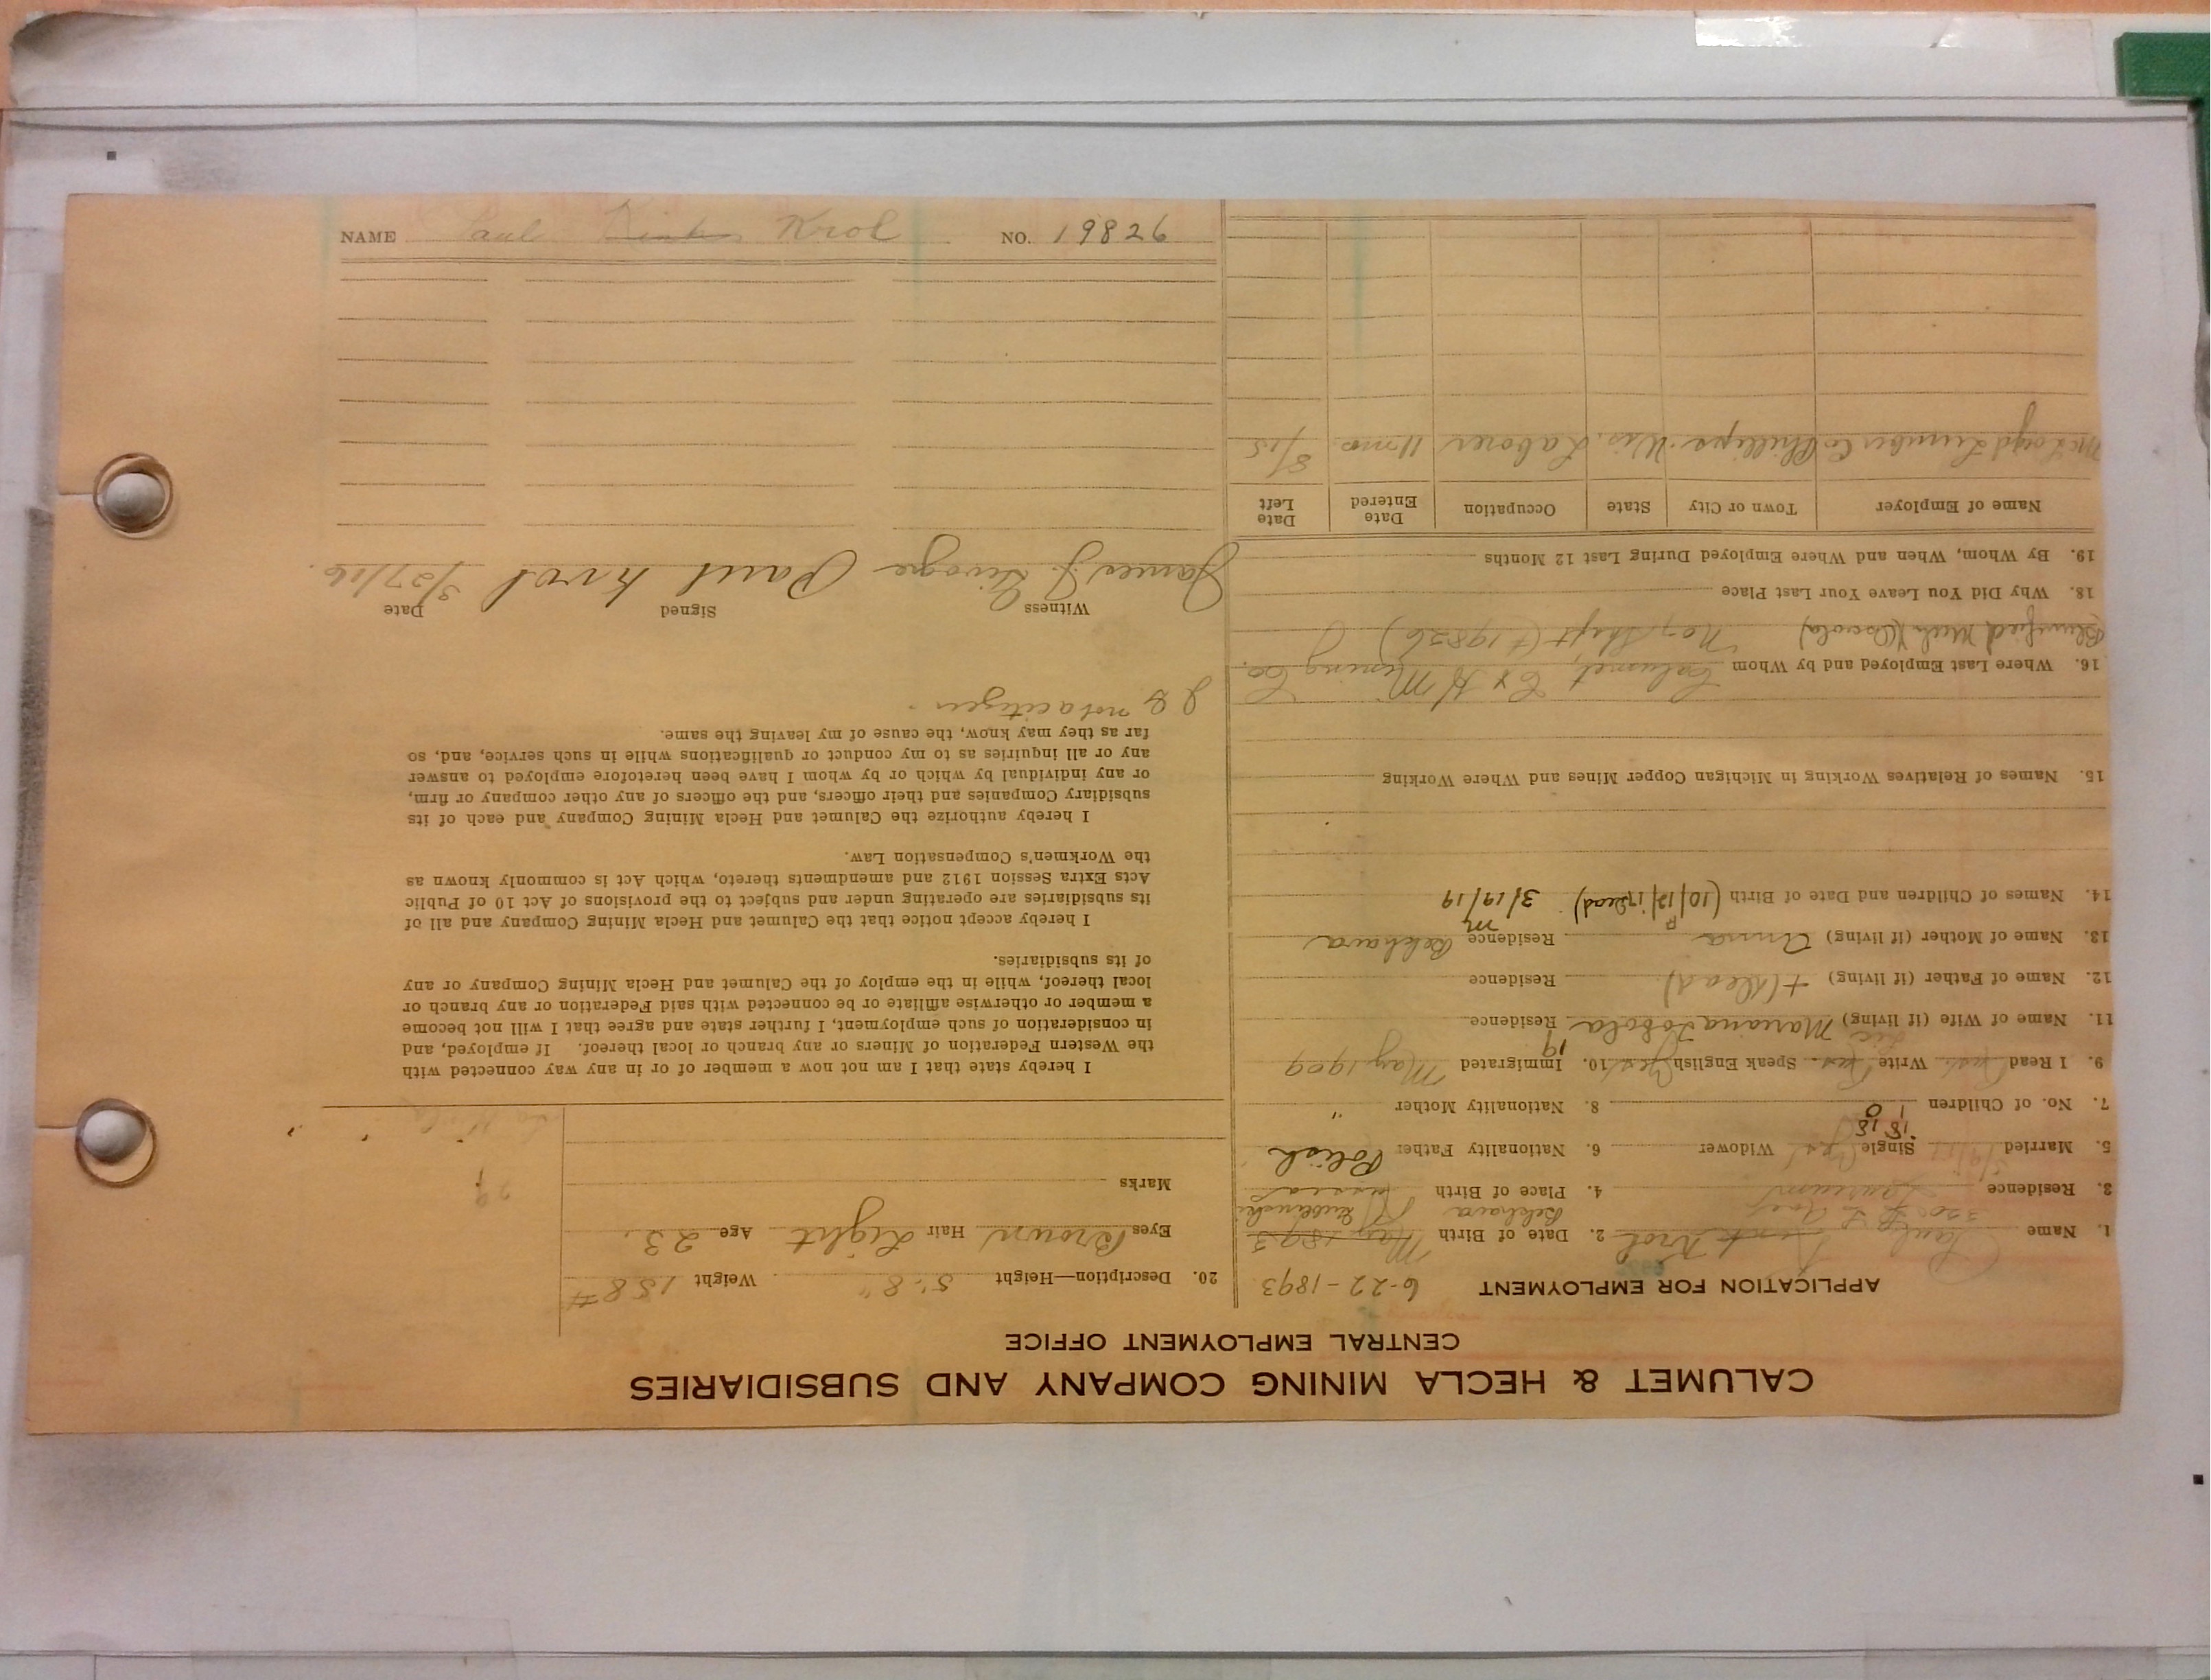 CALUMET & HECLA MINING COMPANY AND SUBSIDIARIES
CENTRAL EMPLOYMENT OFFICE
APPLICATION FOR EMPLOYMENT
6-22-1893
1. Name Paul Krol 2. Date of Birth May 1893
3. Residence Laurium 4. Place of Birth Bekhava Russia
5. Married Single Yes Widower 6. Nationality Father Polish
7. No. of Children 8. Nationality Mother "
9. I Read Write Speak English Yes 10. Immigrated May 1909
11. Name of Wife (if living) Mariana Tobola Residence
12. Name of Father (if living) + (Dead) Residence
13. Name of Mother (if living) Anna Residence Bekhava
14. Names of Children and Date of Birth (10/12/17 Dead) 3/19/19
15. Names of Relatives Working in Michigan Copper Mines and Where Working
16. Where Last Employed and by Whom Calumet, C & H Mining Co.
Mich (Osceola) No. 7 Shft (# 19826)
18. Why Did You Leave Your Last Place
19. By Whom, When and Where Employed During Last 12 Months
Name of Employer Town or City State Occupation Date Entered Date Left
McLoyd Lumber Co Phillips Wis. Laborer 11 mo. 8/15
20. Description—Height 5' 8" Weight 158 #
Eyes Brown Hair Light Age 23
Marks
I hereby state that I am not now a member of or in any way connected with
the Western Federation of Miners or any branch or local thereof. If employed, and
in consideration of such employment, I further state and agree that I will not become
a member or otherwise affiliate or be connected with said Federation or any branch or
local thereof, while in the employ of the Calumet and Hecla Mining Company or any
of its subsidiaries.
I hereby accept notice that the Calumet and Hecla Mining Company and all of
its subsidiaries are operating under and subject to the provisions of Act 10 of Public
Acts Extra Session 1912 and amendments thereto, which Act is commonly known as
the Workmen's Compensation Law.
I hereby authorize the Calumet and Hecla Mining Company and each of its
subsidiary Companies and their officers, and the officers of any other company or firm,
or any individual by which or by whom I have been heretofore employed to answer
any or all inquiries as to my conduct or qualifications while in such service, and, so
far as they may know, the cause of my leaving the same.
not a citizen.
Witness Signed Date
James J. Paul Krol 3/27/16.
NAME Paul Krol NO. 19826